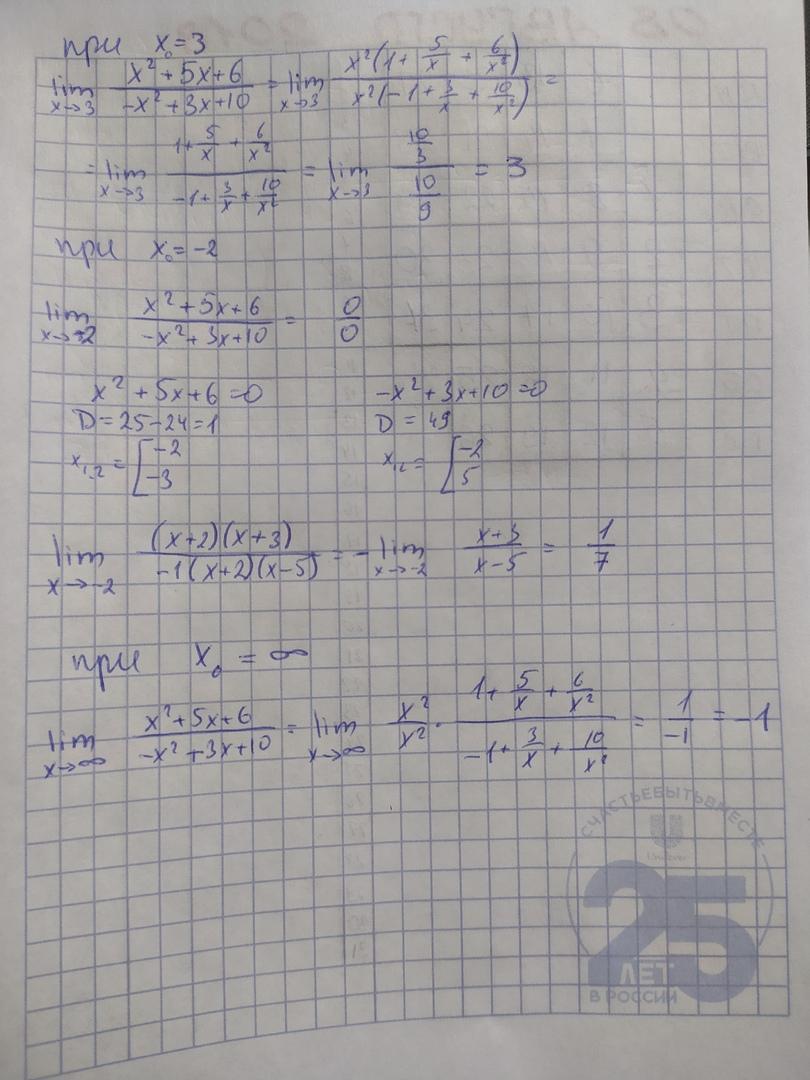 при x₀ = 3
lim x→3 (x² + 5x + 6)/(-x² + 3x + 10) = lim x→3 (x²(1 + 5/x + 6/x²))/(x²(-1 + 3/x + 10/x²)) =
= lim x→3 (1 + 5/x + 6/x²)/(-1 + 3/x + 10/x²) = lim x→3 (10/3)/(10/9) = 3
при x₀ = -2
lim x→-2 (x² + 5x + 6)/(-x² + 3x + 10) = 0/0
x² + 5x + 6 = 0 -x² + 3x + 10 = 0
D = 25 - 24 = 1 D = 49
x₁,₂ = [-2 -3 x₁,₂ = [-2 5
lim x→-2 ((x+2)(x+3))/(-1(x+2)(x-5)) = - lim x→-2 (x+3)/(x-5) = 1/7
при x₀ = ∞
lim x→∞ (x² + 5x + 6)/(-x² + 3x + 10) = lim x→∞ x²/x² · (1 + 5/x + 6/x²)/(-1 + 3/x + 10/x²) = 1/-1 = -1
СЧАСТЬЕБЫТЬВМЕСТЕ
25
ЛЕТ
В РОССИИ